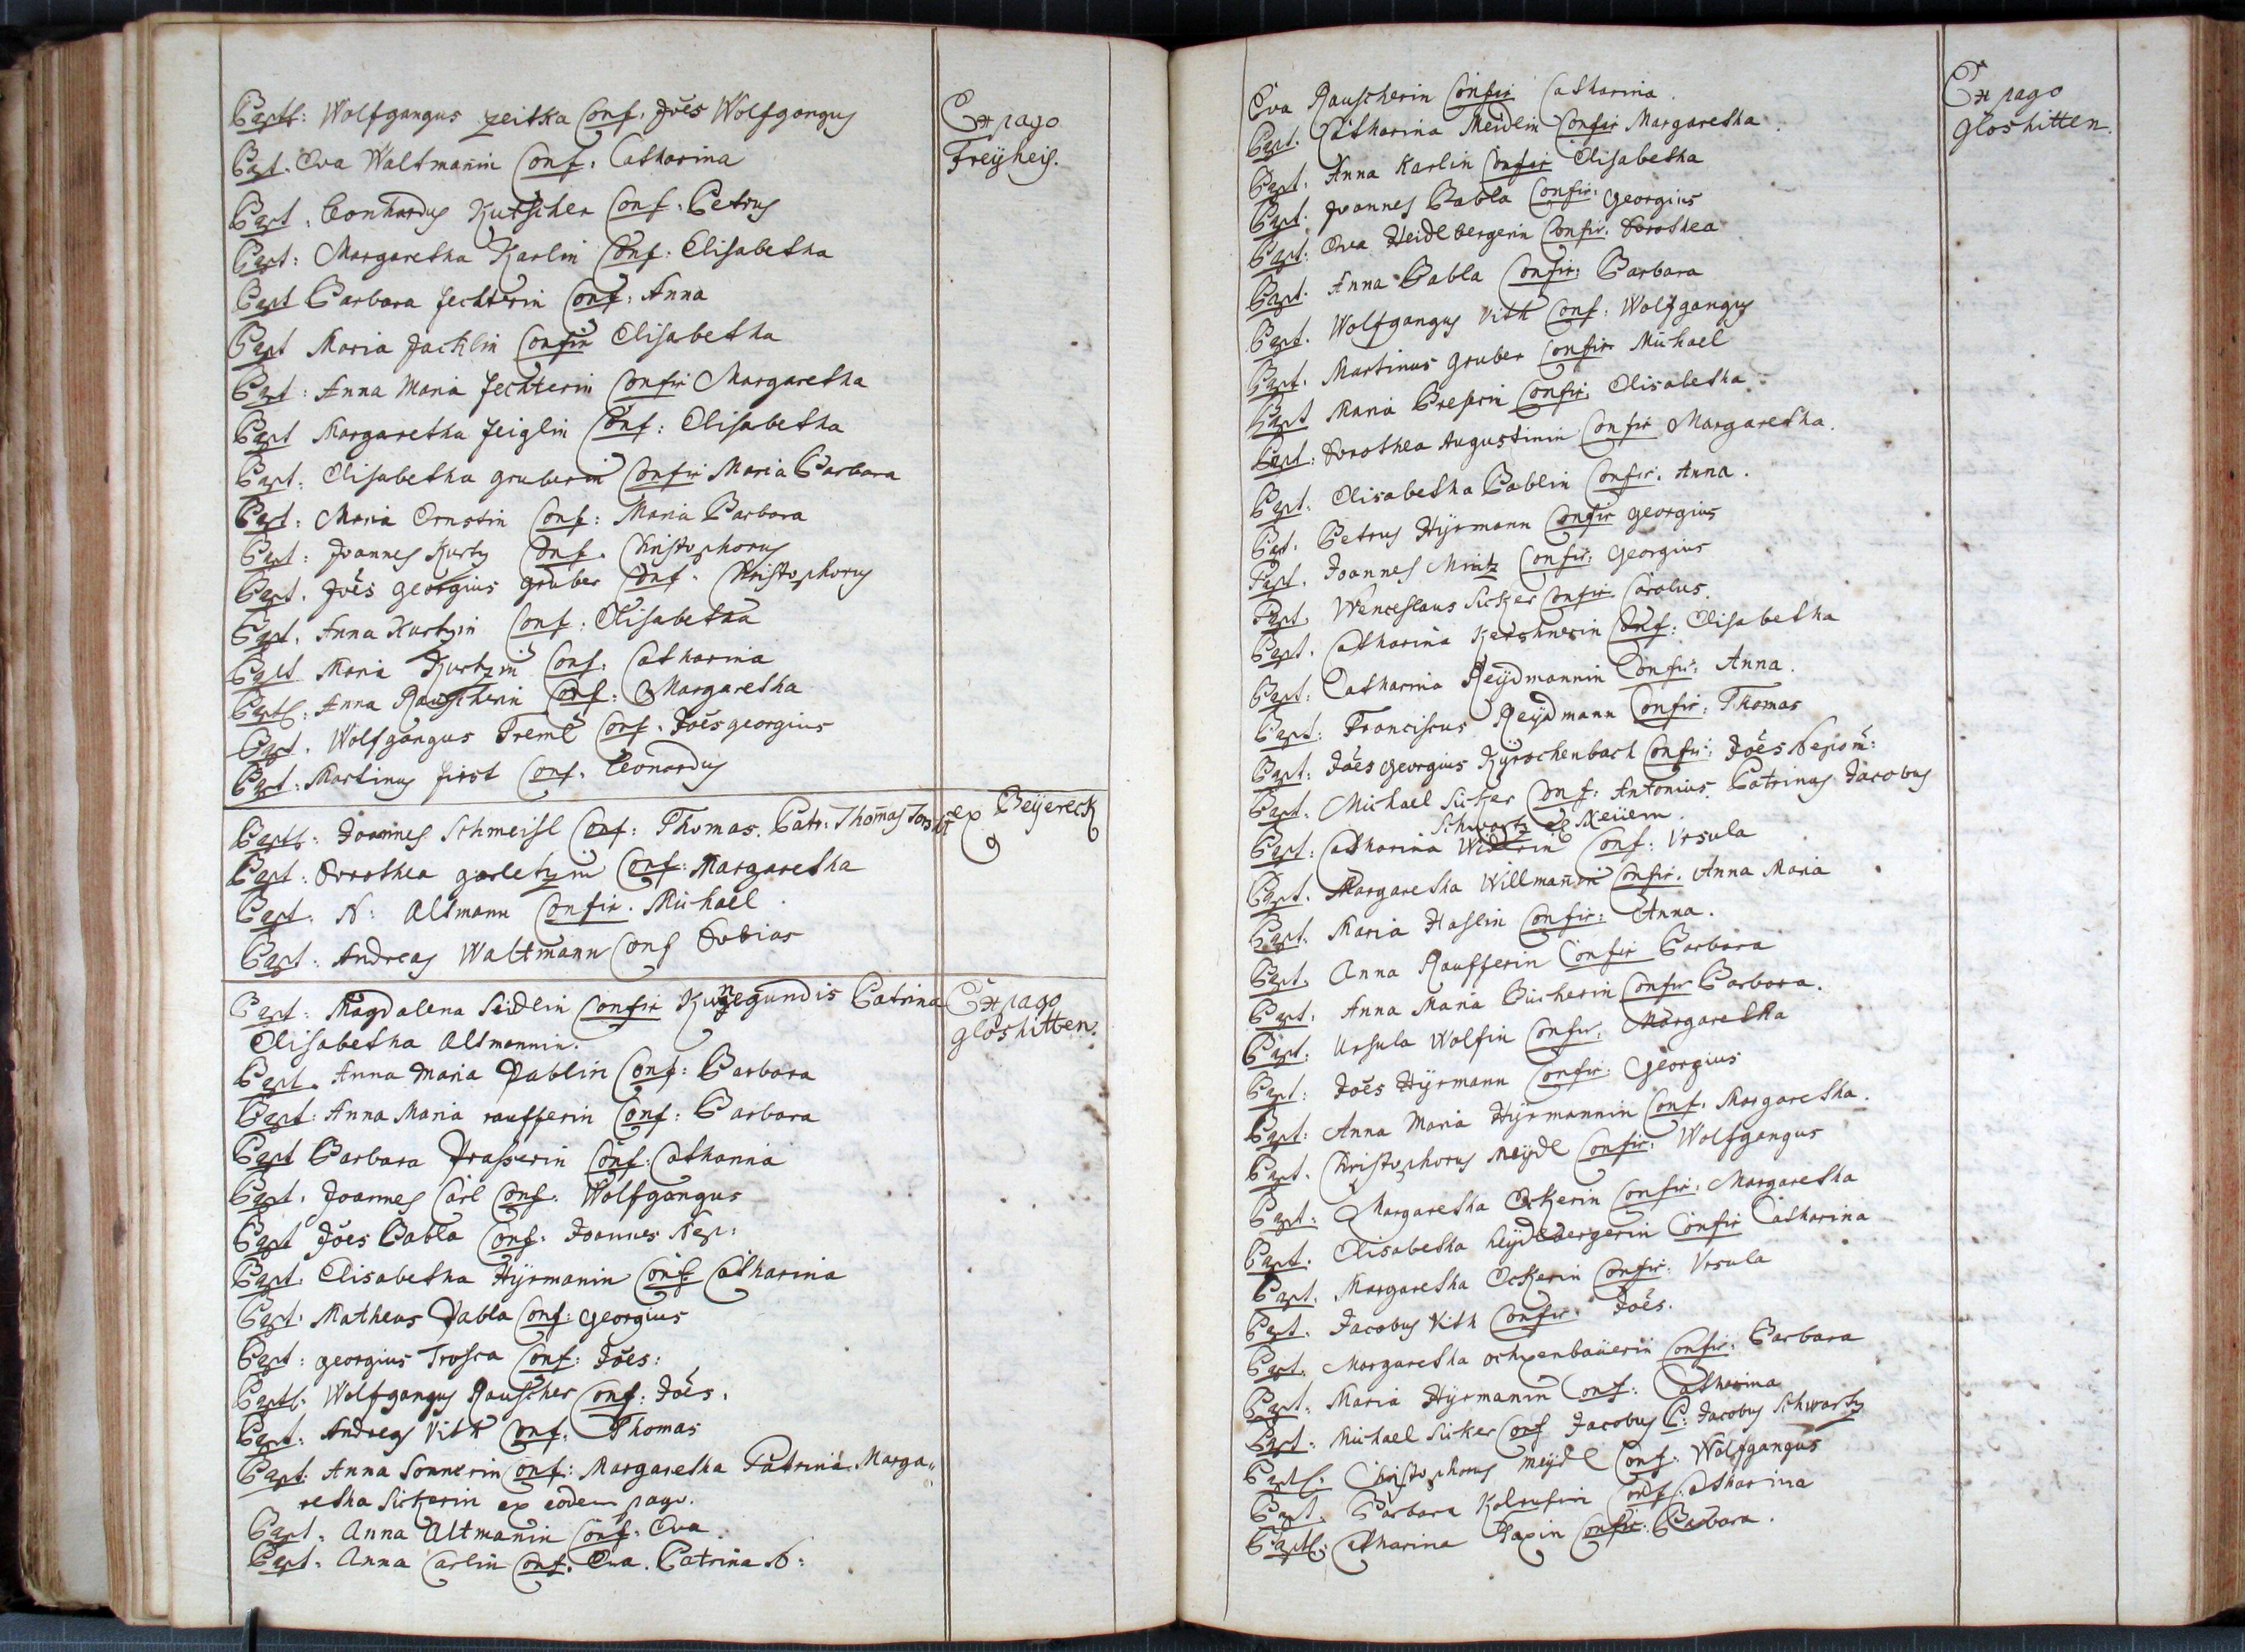 Bapt: Wolfgangus zeitka Conf: Jões Wolfgangus
Ex pago
Freÿheis.
Bapt. Eva Waltmanin Conf: Catharina
Bapt: Leonhardus Kutscher Conf: Petrus
Bapt: Margaretha Karlin Conf: Elisabetha
Bapt Barbara fechterin Conf: Anna
Bapt Maria Jacklin Confir Elisabetha
Bapt: Anna Maria fechterin Confir Margaretha
Bapt Margaretha feiglin Conf: Elisabetha
Bapt: Elisabetha gruberin Confir Maria Barbara
Bapt: Maria Ernstin Conf: Maria Barbara
Bapt: Joannes Kurtz Conf. Christophorus
Bapt. Jões georgius gruber Conf. Christophorus
Bapt. Anna Kurtzin Conf: Elisabetha
Bapt Maria Kurtzin Conf: Catharina
Bapt: Anna Rauscherin Conf: Margaretha
Bapt. Wolfgangus Treml Conf. Jões georgius
Bapt: Martinus first Conf. Leonardus
Bapt: Joannes Schmeisl Conf: Thomas. Patr: Thomas
ex Beÿereck
Bapt: Dorothea garletzin Conf: Margaretha
Bapt. N: Altmann Confir. Michael
Bapt: Andreas Waltmann Conf Tobias
Bapt: Magdalena Seidlin Confir Kunegundis Patrina
Ex pago
gloshitten.
Elisabetha Altmannin.
Bapt. Anna Maria Pablin Conf: Barbara
Bapt: Anna Maria raufferin Conf: Barbara
Bapt Barbara Prasserin Conf: Catharina
Bapt. Joannes Carl Conf: Wolfgangus
Bapt Jões Babla Conf: Joannes Nep:
Bapt. Elisabetha Hÿrmanin Conf: Catharina
Bapt. Matheus Pabla Conf: georgius
Bapt: georgius Trosca Conf: Jões:
Bapt: Wolfgangus Rauscher Conf: Jões.
Bapt: Andreas Vith Conf. Thomas
Bapt: Anna Sonnerin Conf: Margaretha Patrina Marga„
retha Sickerin ex eodem pago.
Bapt. Anna Altmanin Conf: Eva.
Bapt: Anna Carlin Conf. Eva. Patrina N:
Eva Rauscherin Confir Catharina.
Ex pago
gloshitten.
Bapt. Catharina Meidlin Confir Margaretha.
Bapt: Anna Karlin Confir Elisabetha
Bapt. Joannes Babla Confir: georgius
Bapt: Eva Heidlbergerin Confir. Dorothea
Bapt. Anna Babla Confir: Barbara
Bapt. Wolfgangus Vith Conf: Wolfgangus
Bapt. Martinus gruber Confir Michael
Bapt Maria Confir: Elisabetha
Bapt: Dorothea Augustinin Confir Margaretha.
Bapt: Elisabetha Bablin Confir. Anna.
Bapt. Petrus Hÿrmann Confir georgius
Bapt. Joannes Mintz Confir: georgius
Bapt. Wenceslaus Sicker Confir. Carolus.
Bapt. Catharina Kershnerin Conf: Elisabetha
Bapt: Catharina Reÿdmannin Confir: Anna.
Bapt: Franciscus Reÿdmann Confir: Thomas
Bapt: Jões georgius Kÿrschenbach Confir: Jões Nepom:
Bapt. Michael Sicker Conf: Antonius. Patrinus Jacobus
Schwartz ex Neüern.
Bapt: Catharina Widerin Conf: Vrsula
Bapt. Margaretha Willmanin Confir. Anna Maria
Bapt. Maria Haslin Confir: Anna.
Bapt. Anna Raufferin Confir Barbara
Bapt. Anna Maria Bücherin Confir Barbara.
Bapt: Ursula Wolfin Confir. Margaretha
Bapt: Jões Hÿrmann Confir: Georgius
Bapt: Anna Maria Hÿrmannin Conf. Margaretha.
Bapt. Christophorus Meÿdl Confir: Wolfgangus
Bapt: Margaretha Ockerin Confir: Margaretha
Bapt. Elisabetha heÿdlbergerin Confir Catharina
Bapt. Margaretha Ockerin Confir. Vrsula
Bapt. Jacobus Vith Confir. Jões.
Bapt. Margaretha ochsenbaüerin Confir: Barbara
Bapt. Maria Hÿrmanin Conf: Catherina
Bapt: Michael Sicker Conf Jacobus P: Jacobus Schwartz
Bapt: Christophorus Meÿdl Conf: Wolfgangus
Bapt. Barbara Conf: Catharina
Bapt: Catharina Confir: Barbara.